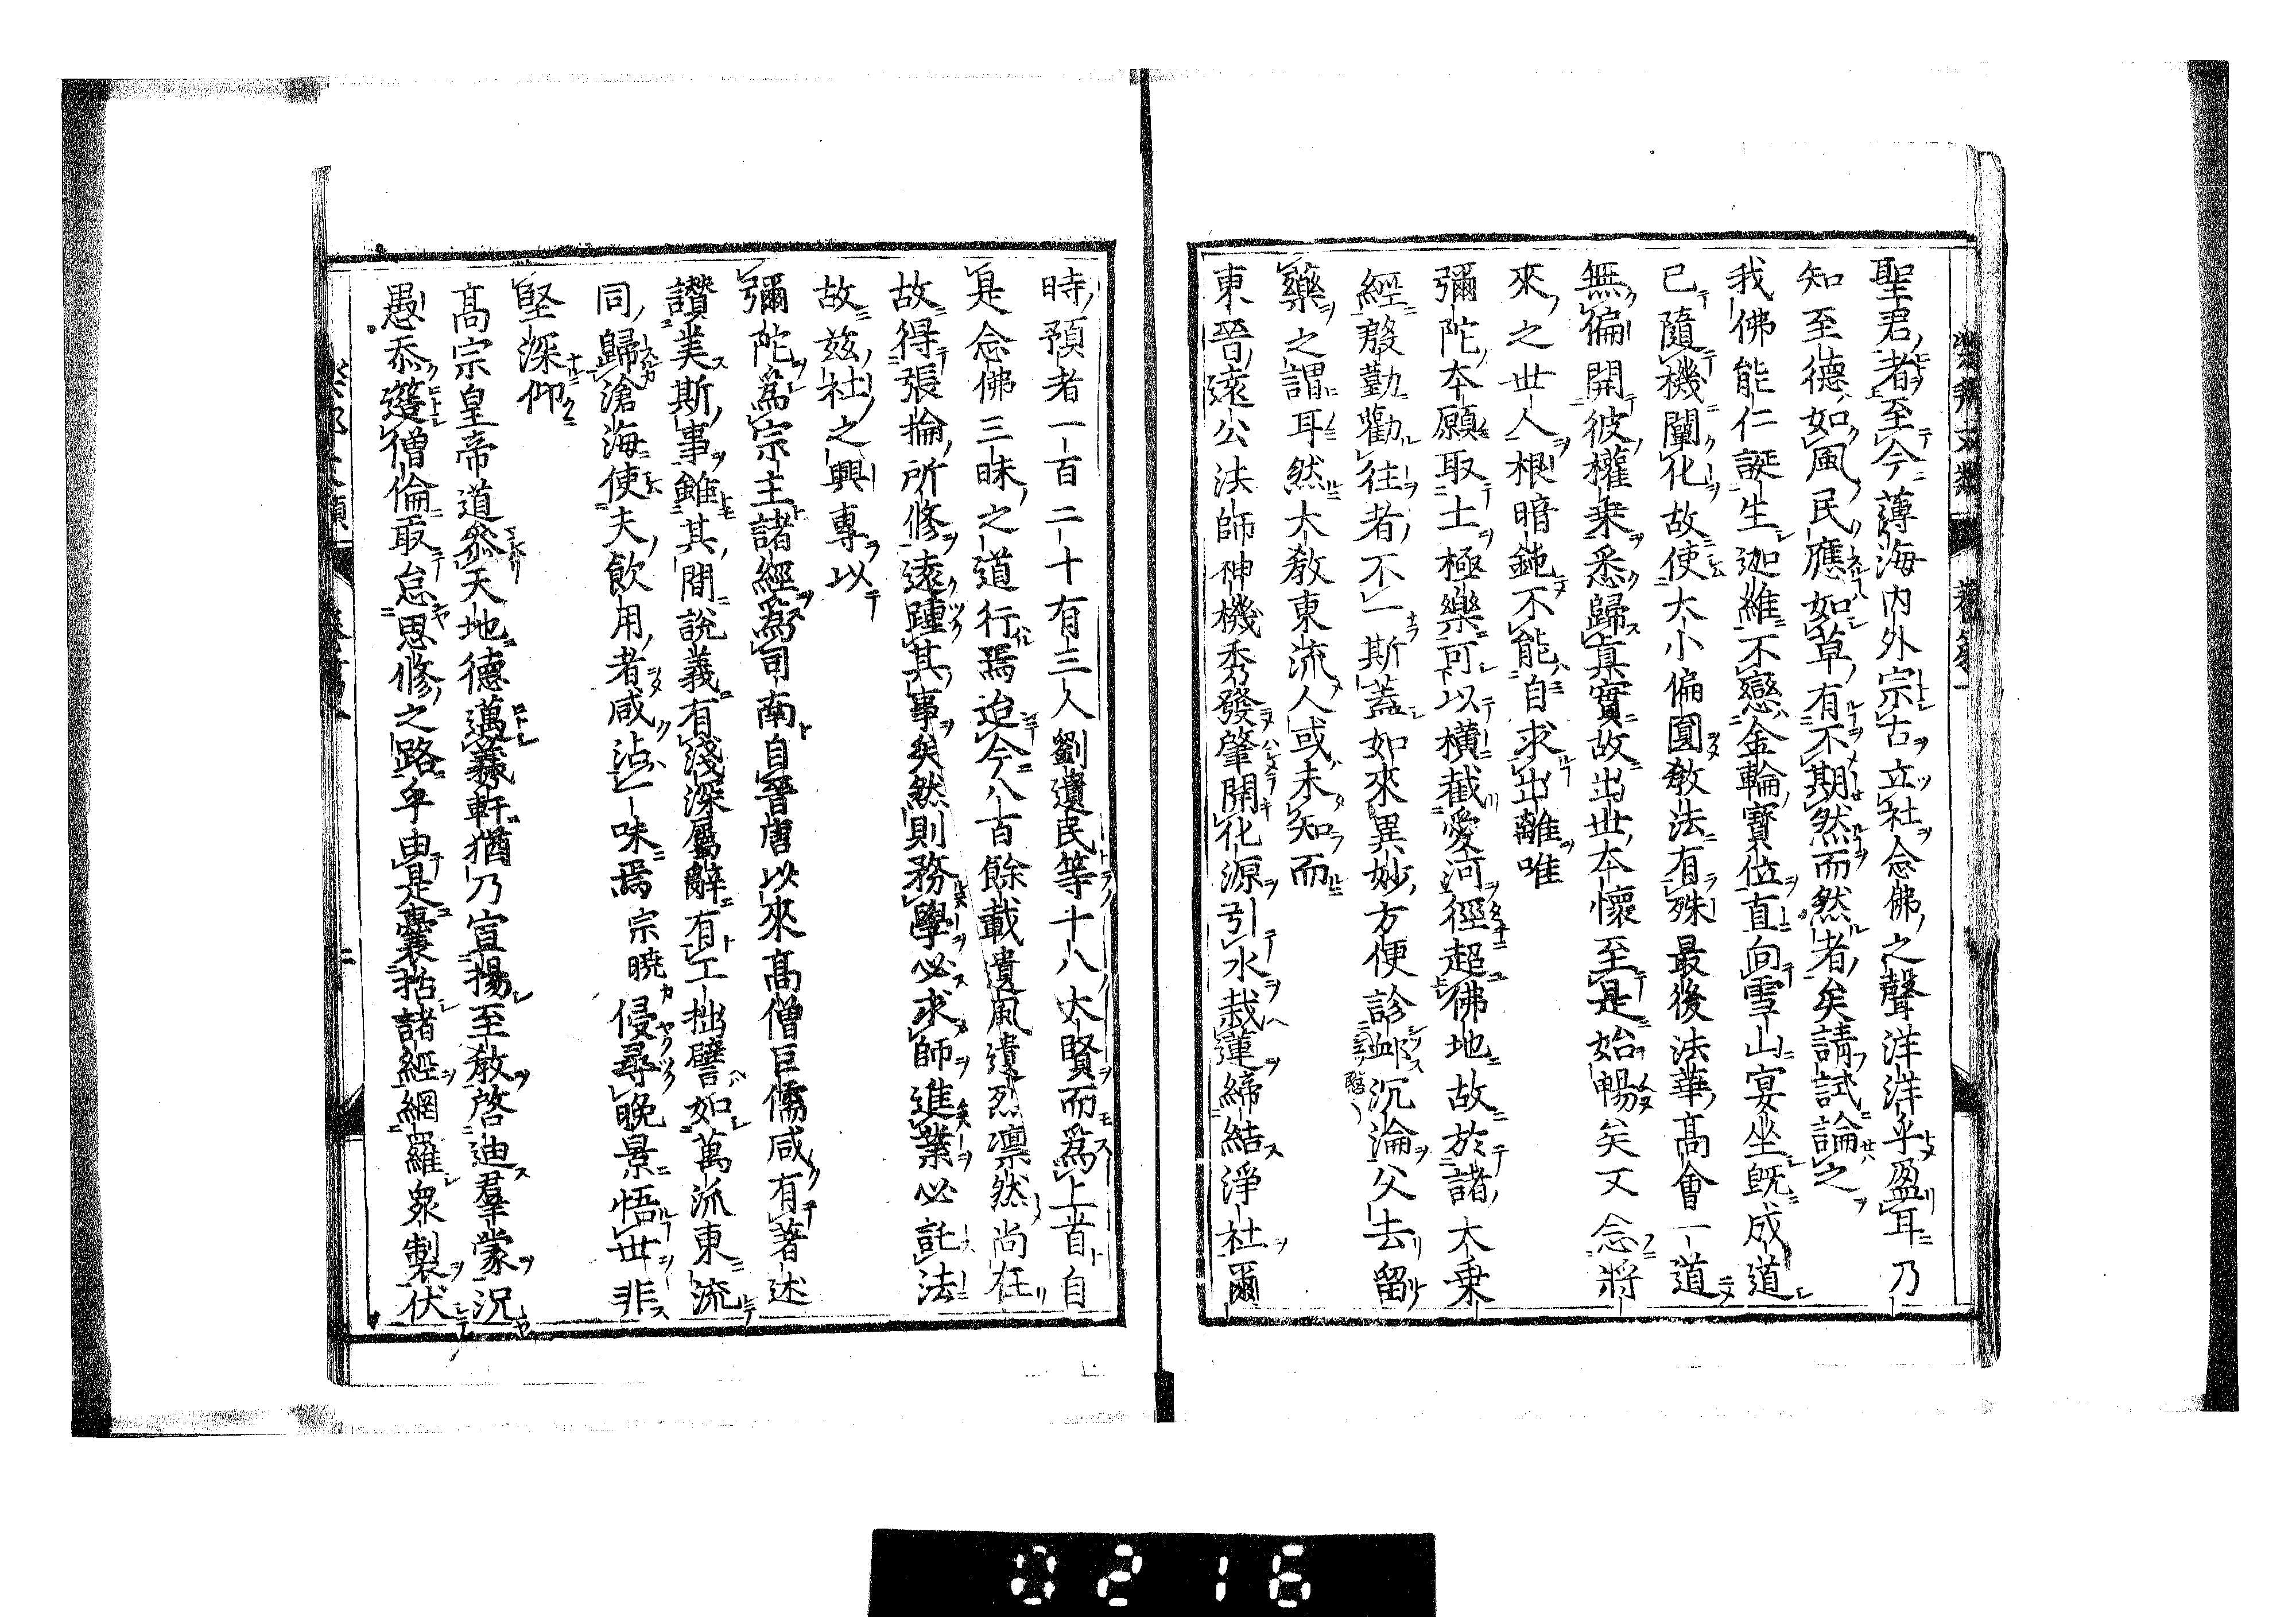 聖君者至今薄海内外宗古立社念佛之聲洋洋乎盈耳乃
知至德如風民應如草有不期然而然者矣請試論之
我佛能仁誕生迦維不戀金輪寶位直向雪山宴坐既成道
已隨機闡化故使大小偏圓教法有殊最後法華高會一道
無偏開彼權乗悉歸真實故出世本懷至是始暢矣又念將
來之世人根暗鈍不能自求出離唯
彌陀本願取土極樂可以橫截愛河徑超佛地故於諸大乗
經殷勤勸往者不一斯蓋如來異妙方便診邺沉淪父去留
藥之謂耳然大教東流人或未知而
東晉遠公法師神機秀發肇開化源引水栽蓮締結淨社爾
時預者一百二十有三人劉遺民等十八大賢而爲上首自
是念佛三昧之道行焉迨今八百餘載遺風遺烈凛然尚在
故得張掄所修遠踵其事矣然則務學必求師進業必託法
故兹社之興專以
彌陀爲宗主諸經爲司南自晉唐以來髙僧巨儒咸有著述
讃美斯事雖其間說義有淺深屬辭有工拙譬如萬派東流
同歸滄海使夫飲用者咸沾一味焉宗曉侵尋晚景悟世非
堅深仰
髙宗皇帝道叅天地德邁義軒猶乃宣揚至教啓迪羣蒙況
愚忝簉僧倫敢怠思修之路乎由是囊括諸經網羅衆製伏
0216